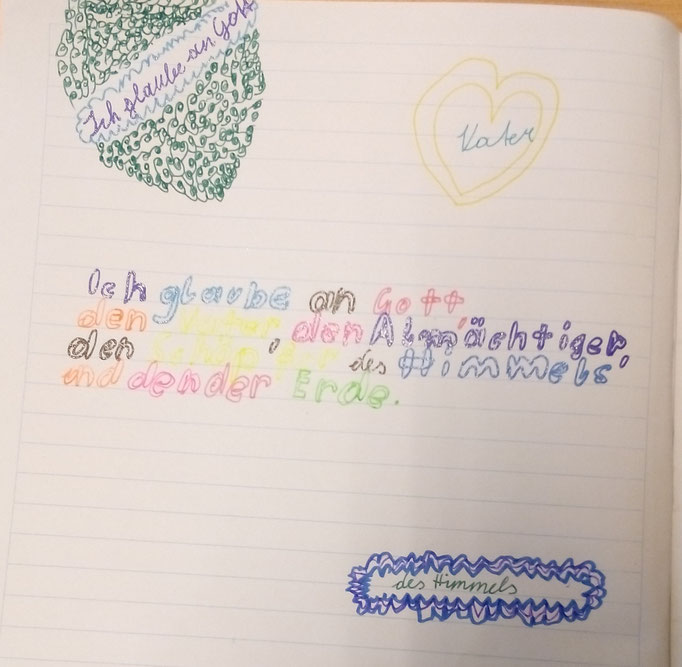 Ich glaube an Gott
Vater
Ich glaube an Gott,
den Vater, den Almächtiger,
den Schöpfer des Himmels,
und dender Erde.
des Himmels